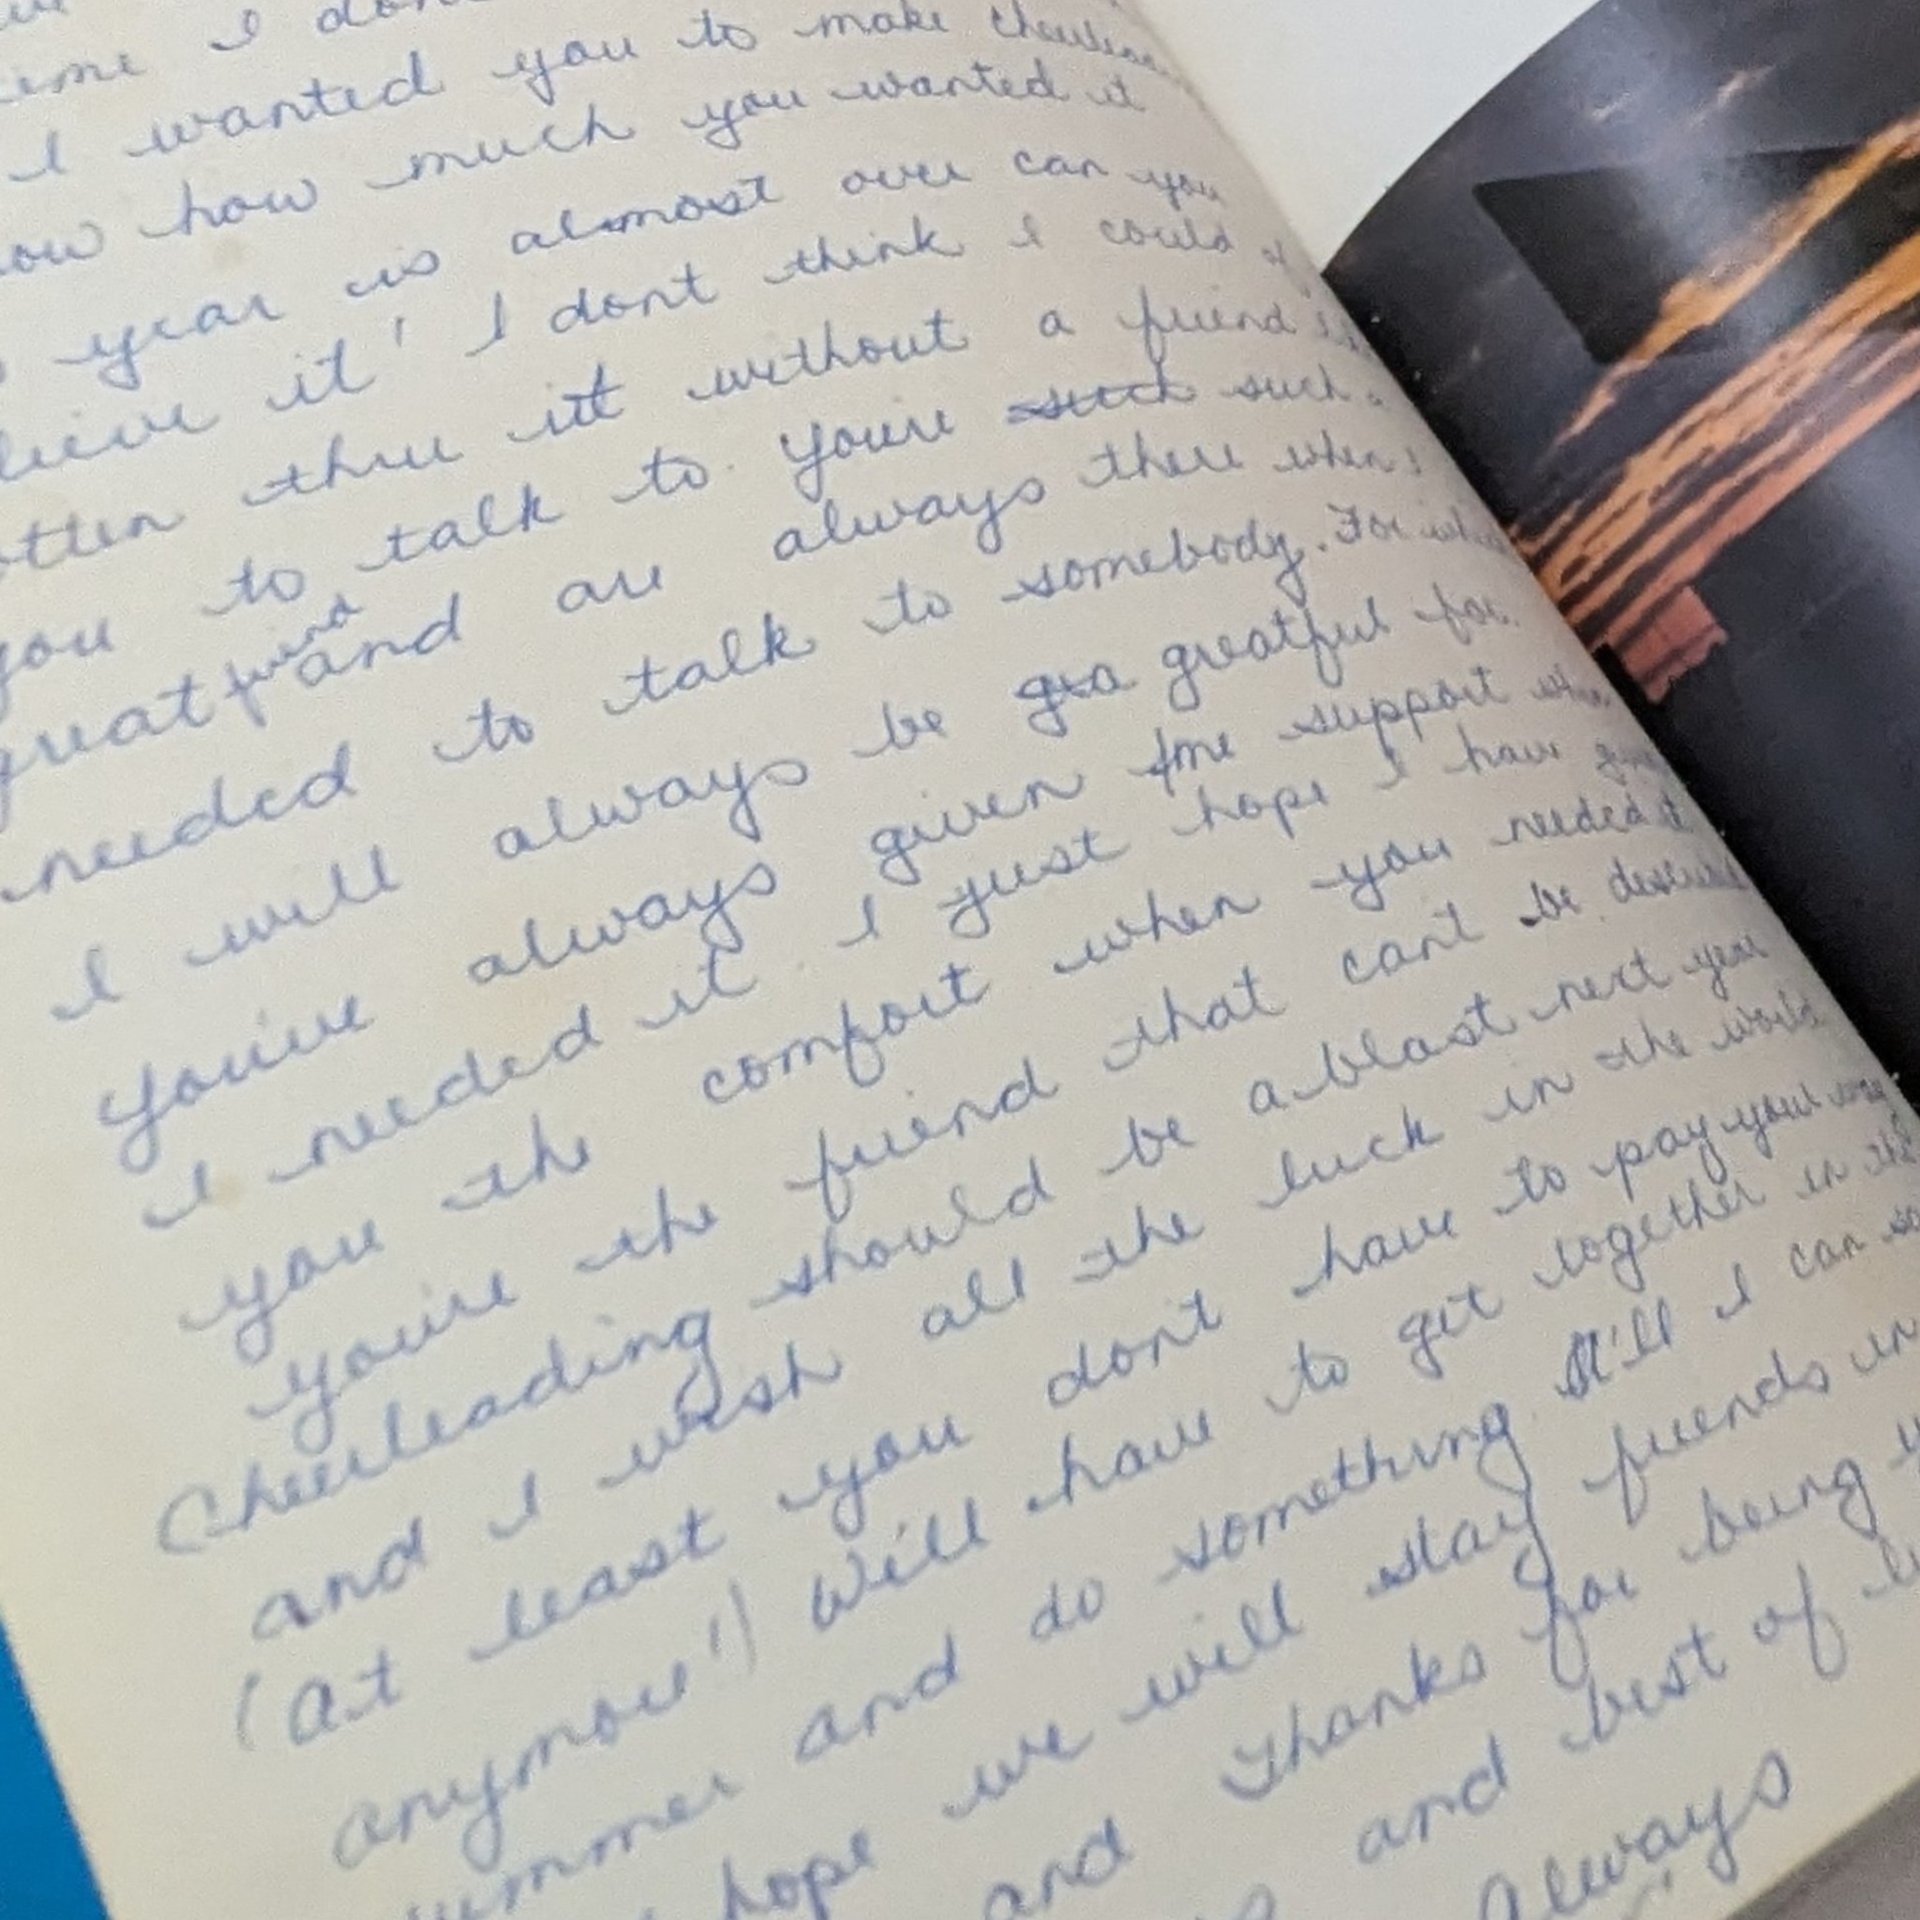 I
I wanted you to make
how much you wanted it
year is almost over can you
it! I dont think I could
thru it without a friend
you to talk to. Youre such such a
great friend and are always there when I
needed to talk to somebody. For
I will always be gra greatful for
You've always given me support
I needed it. I just hope I have
you the comfort when you needed it
you're the friend that can't be
Cheerleading should be a blast next year
and I wish all the luck in the world
(At least you don't have to pay your way
anymore!) Will have to get together in the
and do something. I can
hope we will stay friends
and Thanks for being
and best of
Always